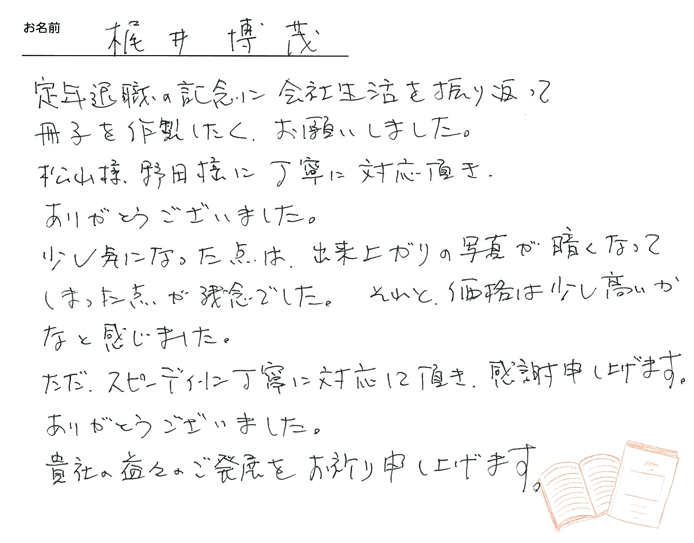 お名前 梶井 博茂
定年退職の記念に 会社生活を振り返って
冊子を作製したく、お願いしました。
松山様、野田様に 丁寧に 対応頂き、
ありがとうございました。
少し気になった点は、出来上がりの写真が暗くなって
しまった点が残念でした。 それと、価格は少し高いか
なと感じました。
ただ、スピーディーに丁寧に対応して頂き、感謝申し上げます。
ありがとうございました。
貴社の益々のご発展をお祈り申し上げます。